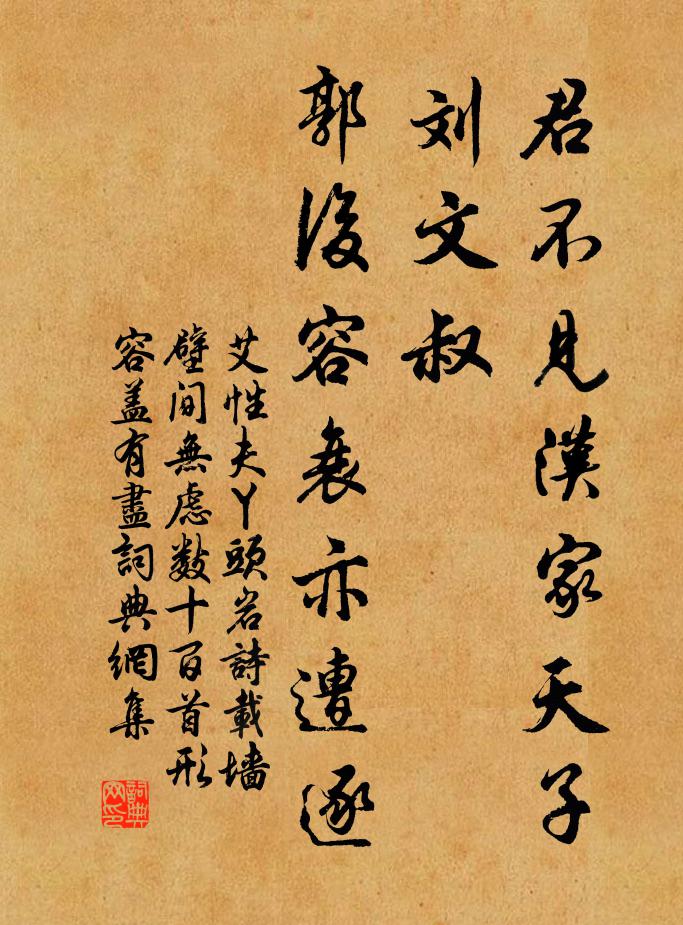 君不見漢家天子
刘文叔
郭後容衰亦遭逐
艾性夫丫頭岩詩載墻
壁间無慮数十百首形
容盖有盡詞典網集
詞典
网印